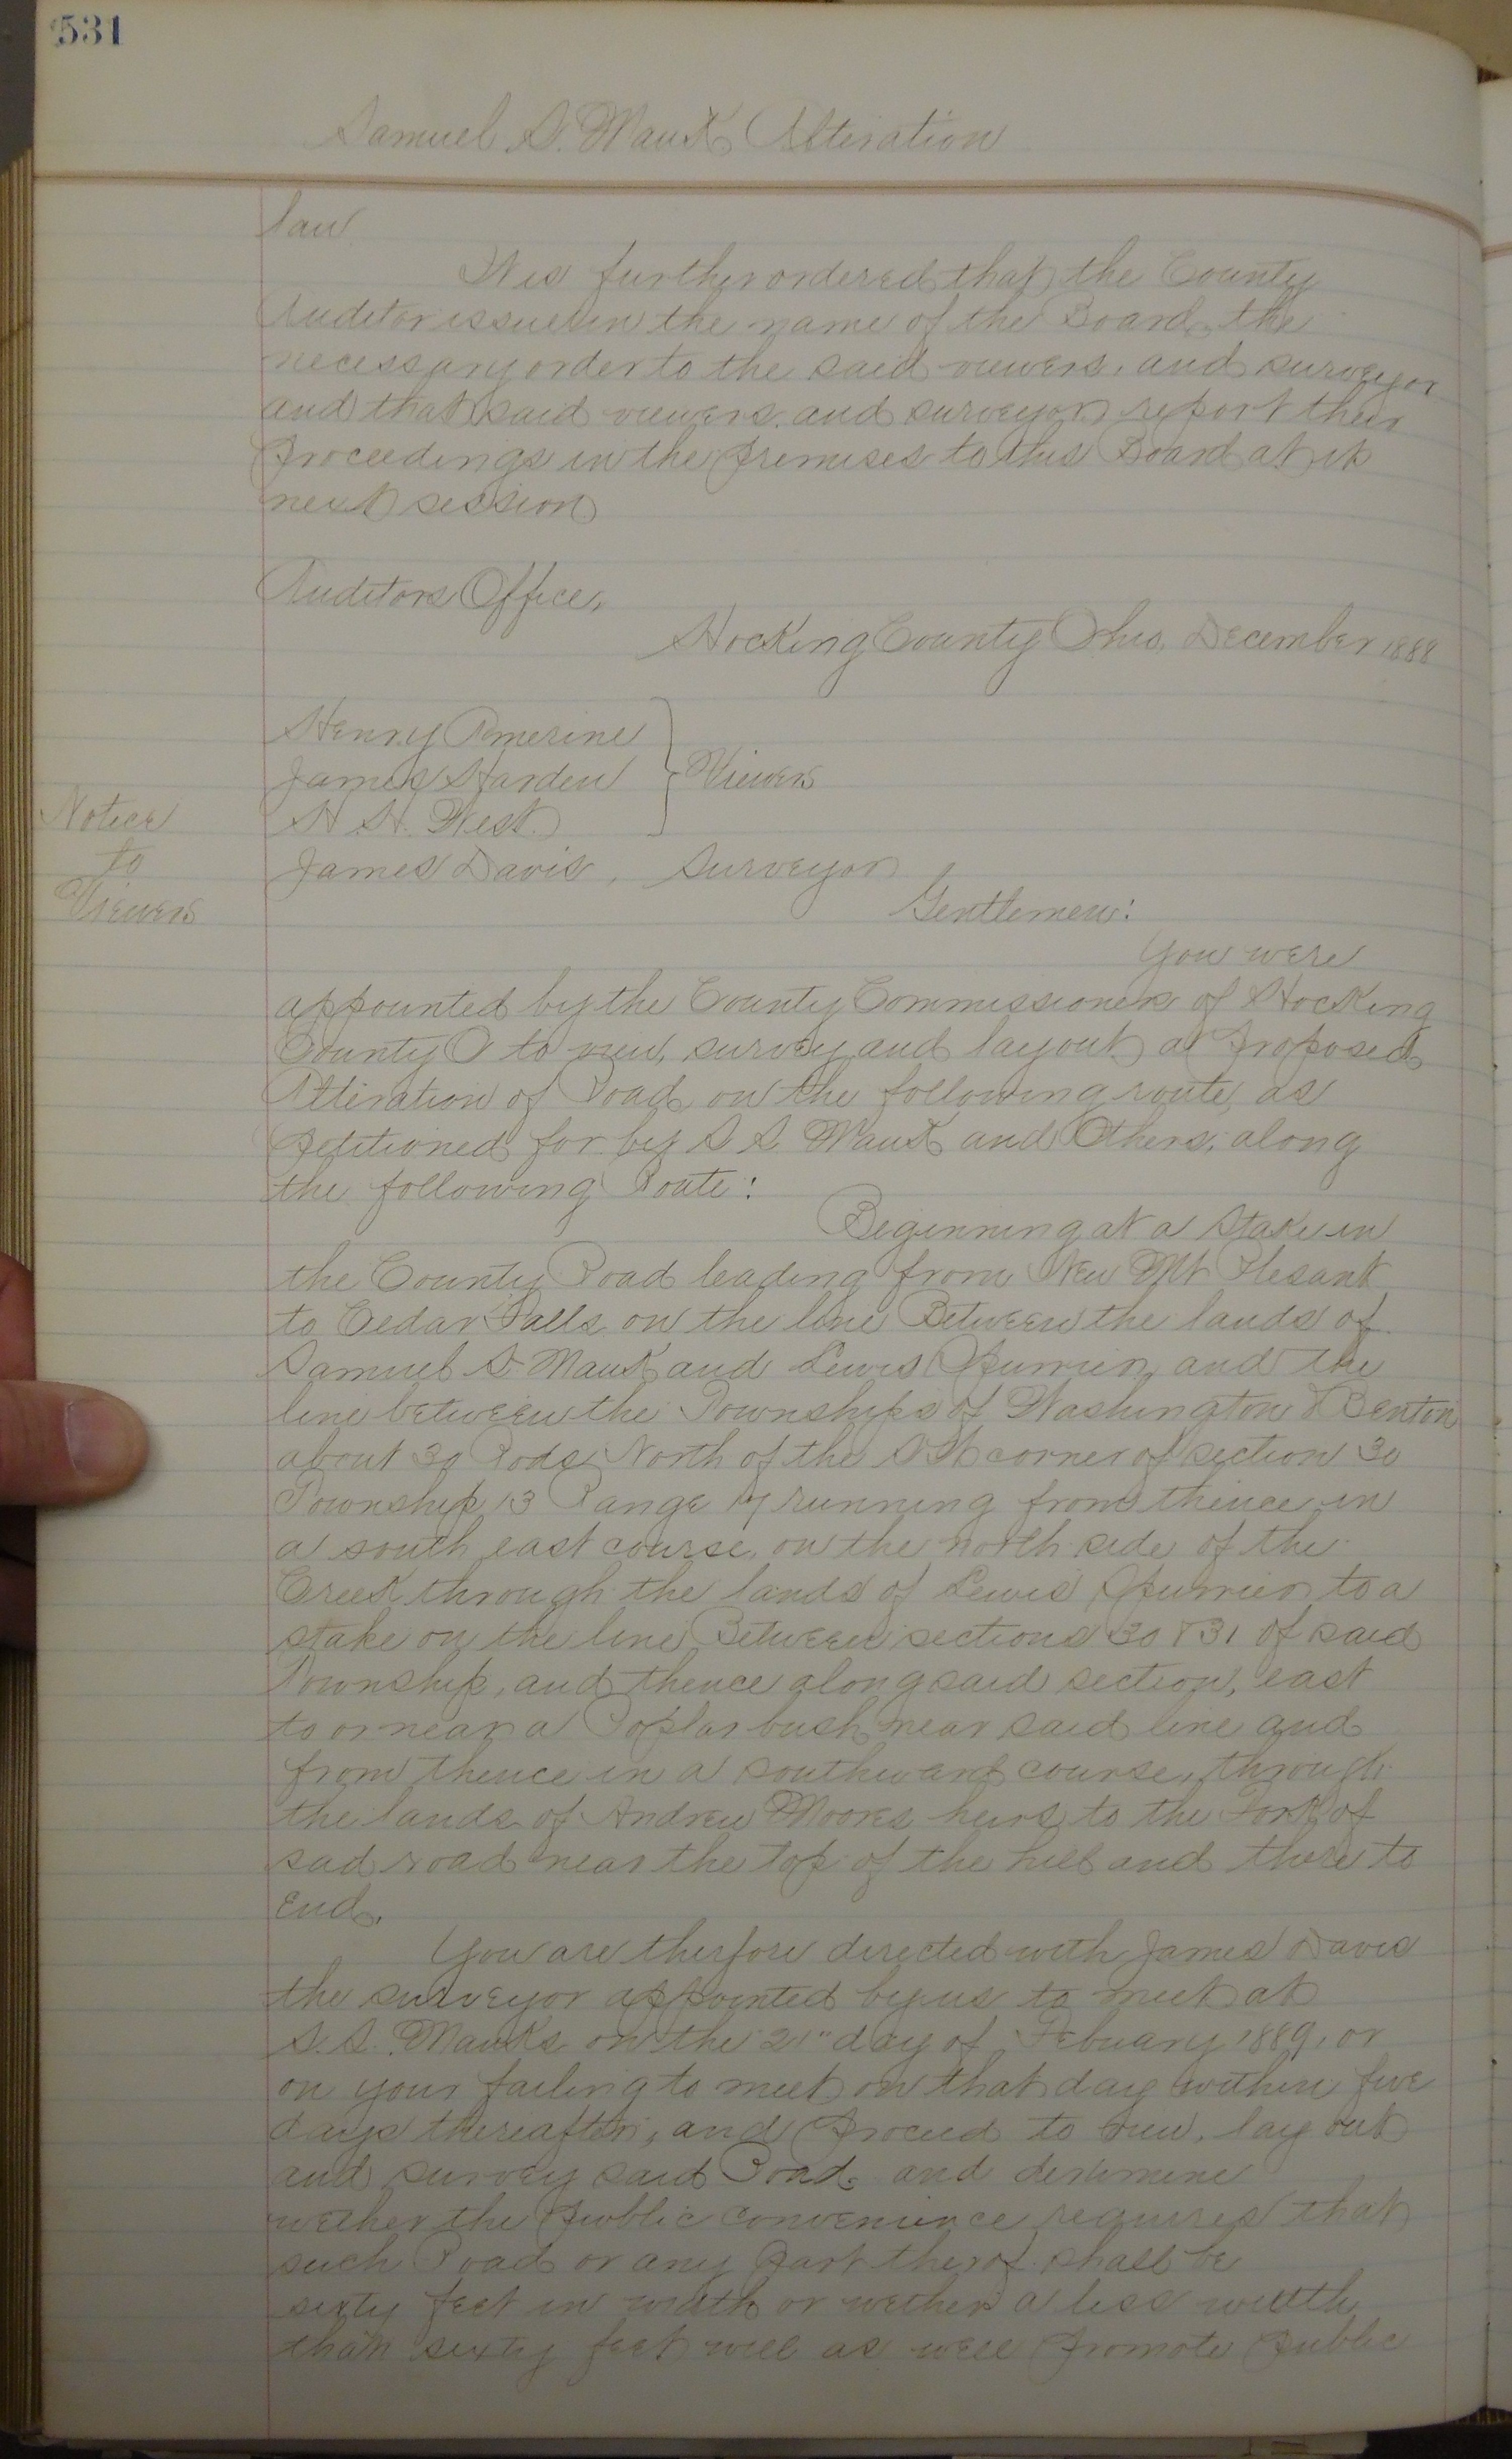 531
Samuel S. Mauk Alteration
law
It is further ordered that the County
Auditor issue in the name of the Board, the
necessary order to the said viewers, and surveyor
and that said viewers and surveyor report their
proceedings in the premises to this Board at it
next session
Auditors Office,
Hocking County Ohio, December 1888
Henry Amerine
James Harden } Viewers
H. H. West
James Davis, Surveyor
Notice
to
Viewers
Gentlemen:
You were
appointed by the County Commissioners of Hocking
County O to view, survey and layout a proposed
Alteration of Road on the following route, as
petitioned for by S S Mauk and Others, along
the following Route:
Beginning at a Stake in
the County Road leading from New Mt Plesant
to Cedar Falls on the line Between the lands of
Samuel S Mauk and Lewis Spurrier, and the
line between the Townships of Washington & Benton
about 30 Rods North of the corner of section 30
Township 13 Range 17 running from thence in
a south east course, on the north side of the
Creek through the lands of Lewis Spurrier to a
stake on the line Between sections 30 & 31 of said
Township, and thence along said section, east
to or near a Poplar bush near said line and
from thence in a southward course, through
the lands of Andrew Moores heirs to the Fork of
sad road near the top of the hill and there to
End.
You are therfore directed with James Davis
the surveyor appointed by us to meet at
S. S. Mauks on the 21" day of Febuary 1889, or
on your failing to meet on that day within five
days thereafter, and proceed to view, lay out
and survey said Road. and determine
wether the public convenience requires that
such Road or any part therof shall be
sixty feet in width or wether a less width
than sixty feet will as well promote public